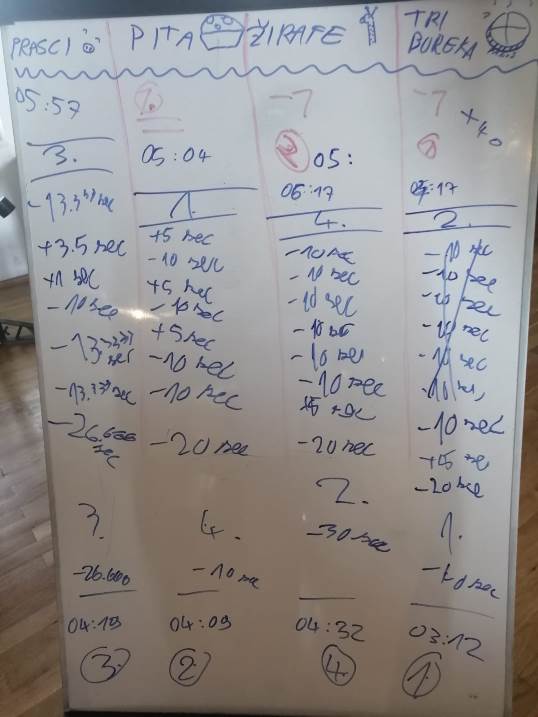 PRASCI
PITA
ŽIRAFE
TRI
BUREKA
05:57
3.
-13.333 sec
+3.5 sec
+1 sec
-10 sec
-13.333 sec
-13.333 sec
-26.666 sec
3.
-26.666
04:19
3.
1.
05:04
1.
+5 sec
-10 sec
+5 sec
-10 sec
+5 sec
-10 sec
-10 sec
-20 sec
4.
-10 sec
04:09
2.
-7
2
05:
05:17
4.
-10 sec
-10 sec
-10 sec
-10 sec
-10 sec
-10 sec
+5 sec
-20 sec
2.
-30 sec
04:32
4.
-7
+40
05:17
2.
-10 sec
-10 sec
-10 sec
-10 sec
-10 sec
-10 sec
-10 sec
+5 sec
-20 sec
1.
sec
03:12
1